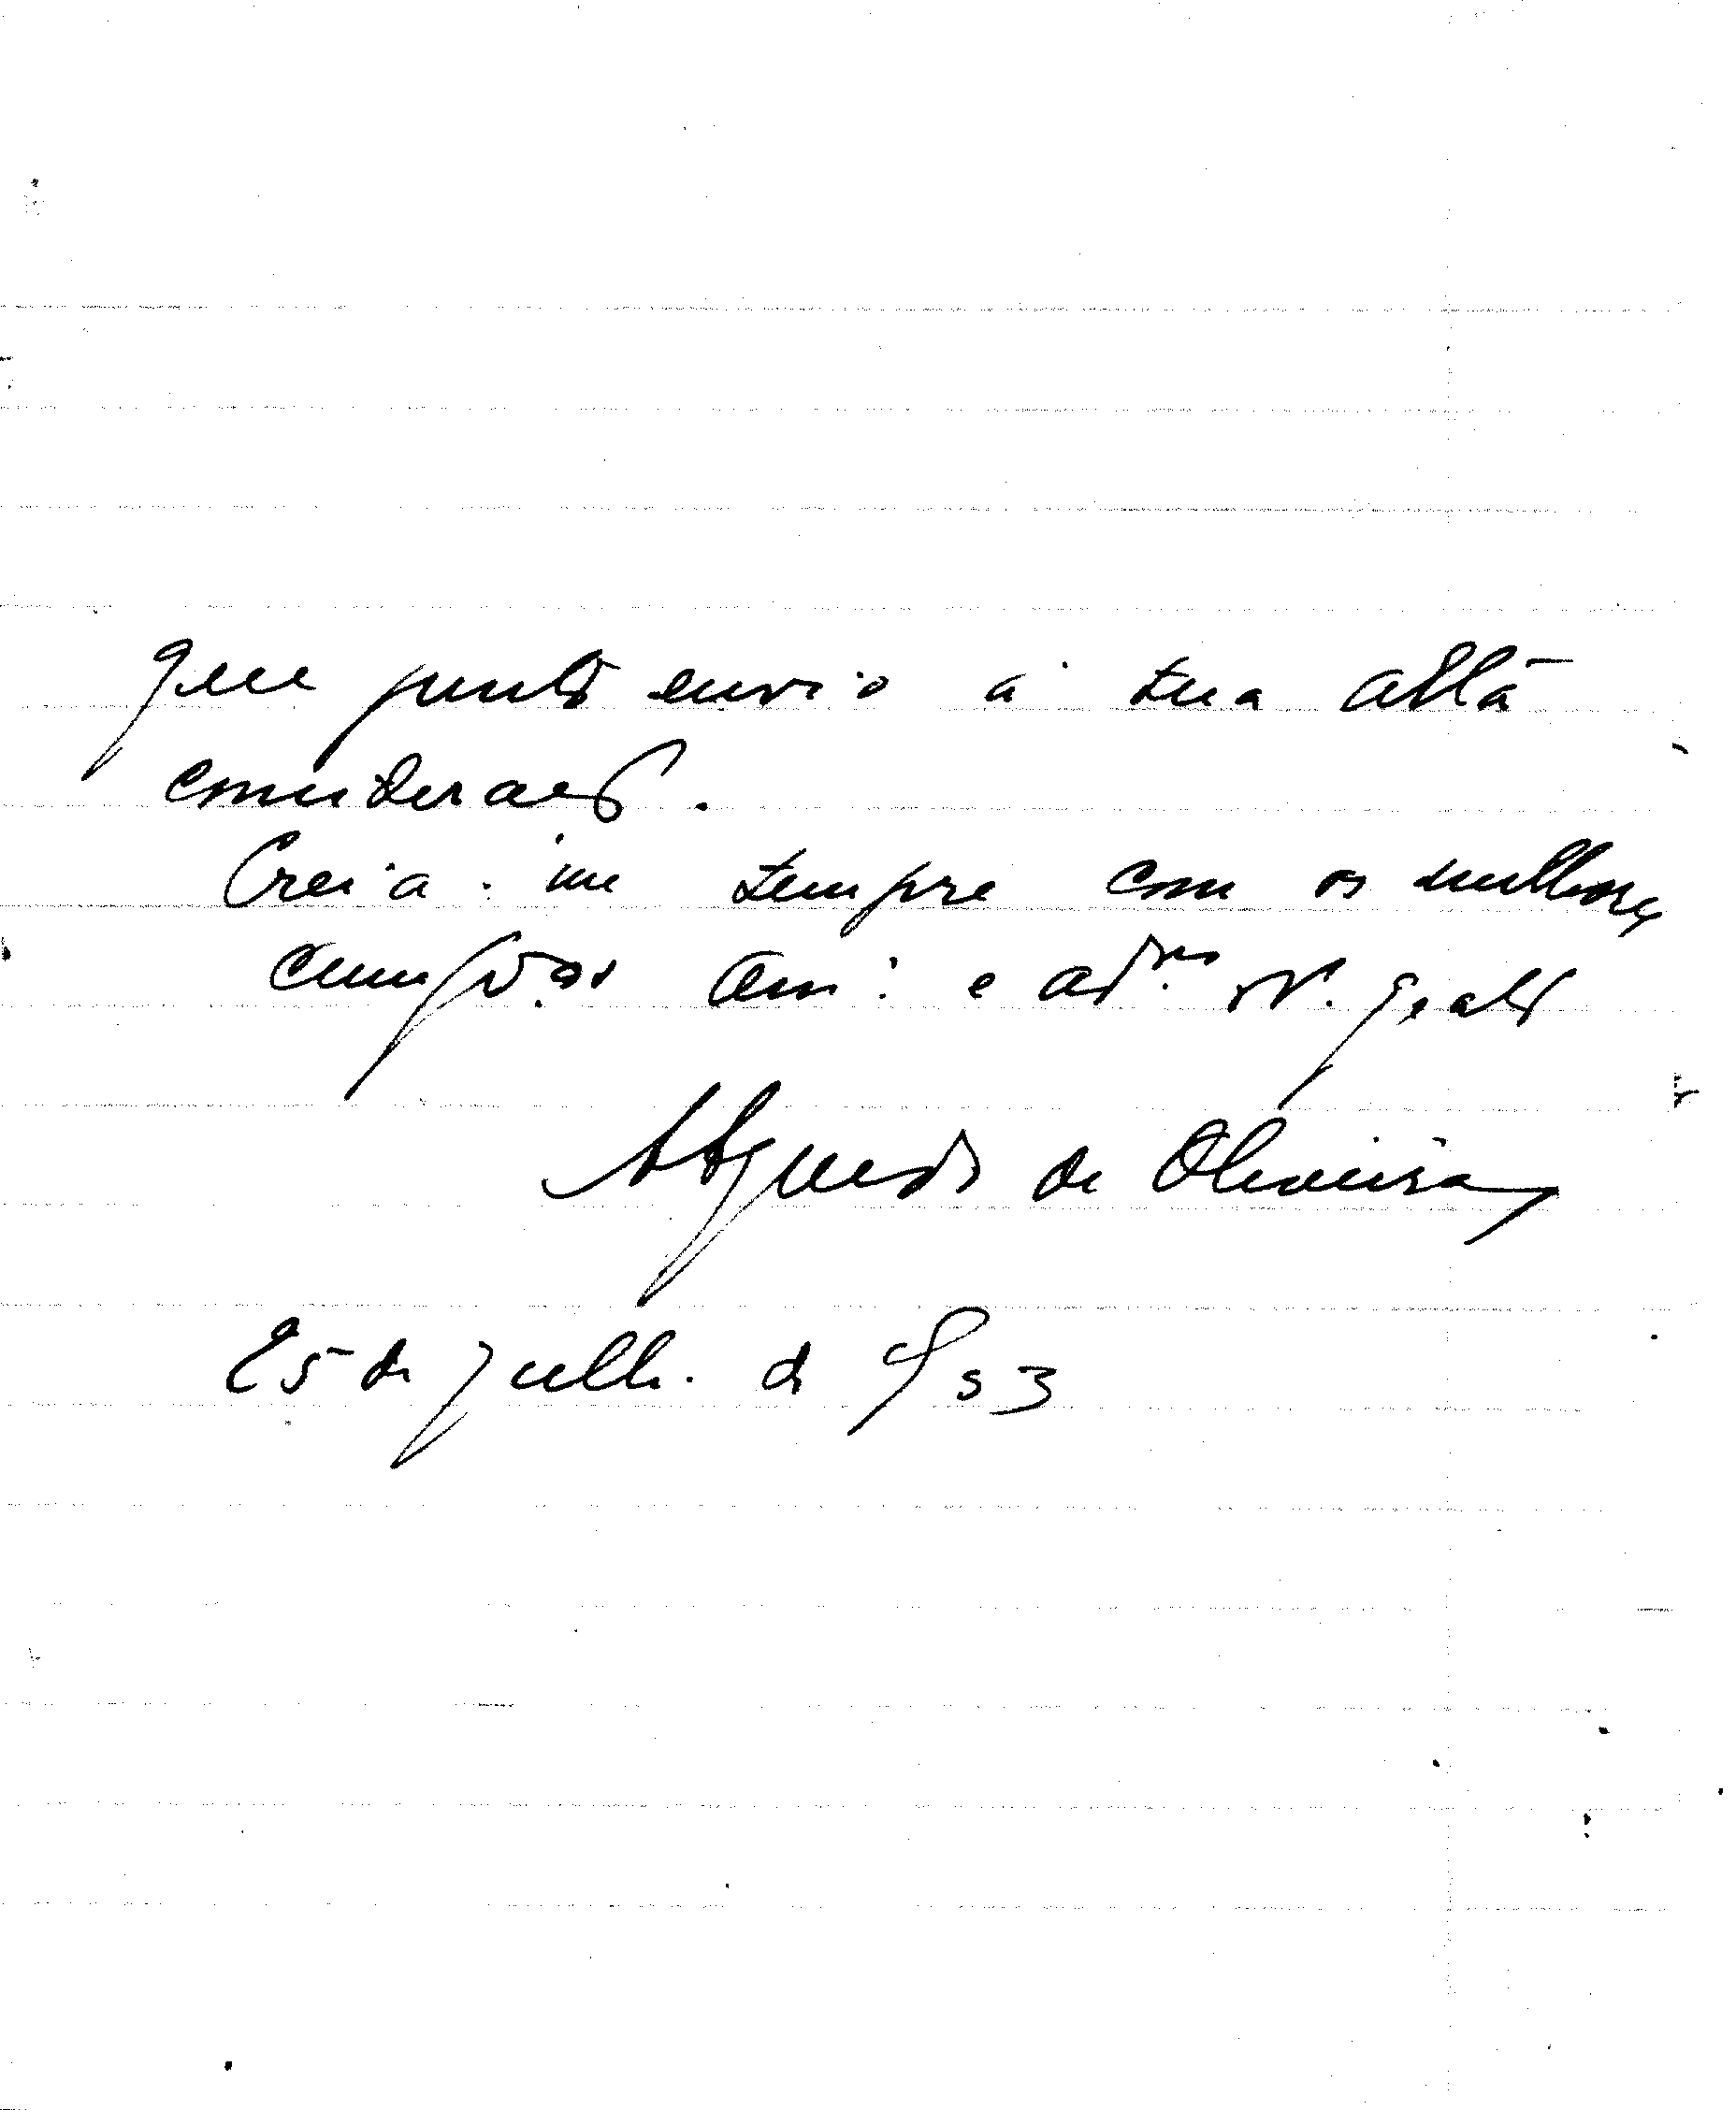 que junto envio à sua alta
consideração.
Creia-me sempre com os melhores
cump.tos Am.º e ad.or m.to grato
A Águedo de Oliveira
25 de julho de 953